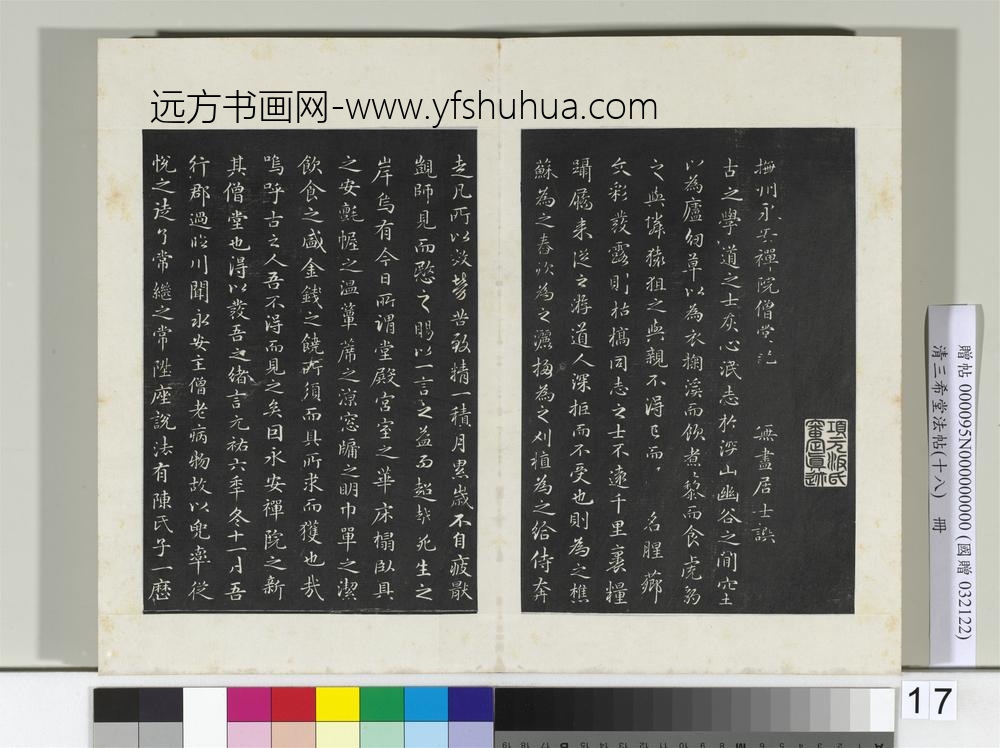 远方书画网-www.yfshuhua.com
撫州永安禪院僧堂記 無盡居士譔
古之學道之士灰心泯志於深山幽谷之間穴土
以為廬紉草以為衣掬溪而飲煮藜而食虎豹
之與鄰猿狙之與親不得已而名腥薌
文彩發露則枯槁同志之士不遠千里裹糧
躡屩來從之遊道人深拒而不受也則為之樵
蘇為之舂炊為之灑掃為之刈植為之給侍奔
走凡所以效勞苦致精一積月累歲不自疲厭
覬師見而愍之賜以一言之益而超越死生之
岸烏有今日所謂堂殿宮室之華床榻臥具
之安氈幄之温簟蓆之涼窓牖之明巾單之潔
飲食之盛金錢之饒所須而具所求而獲也哉
嗚呼古之人吾不得而見之矣因永安禪院之新
其僧堂也得以發吾之緒言元祐六年冬十一月吾
行郡過臨川聞永安主僧老病物故以兜率從
悅之徒了常繼之常陞座說法有陳氏子一歷
項元汴氏審定真跡
贈帖 000095N000000000 (國贈 032122)
清三希堂法帖(十八) 冊
17